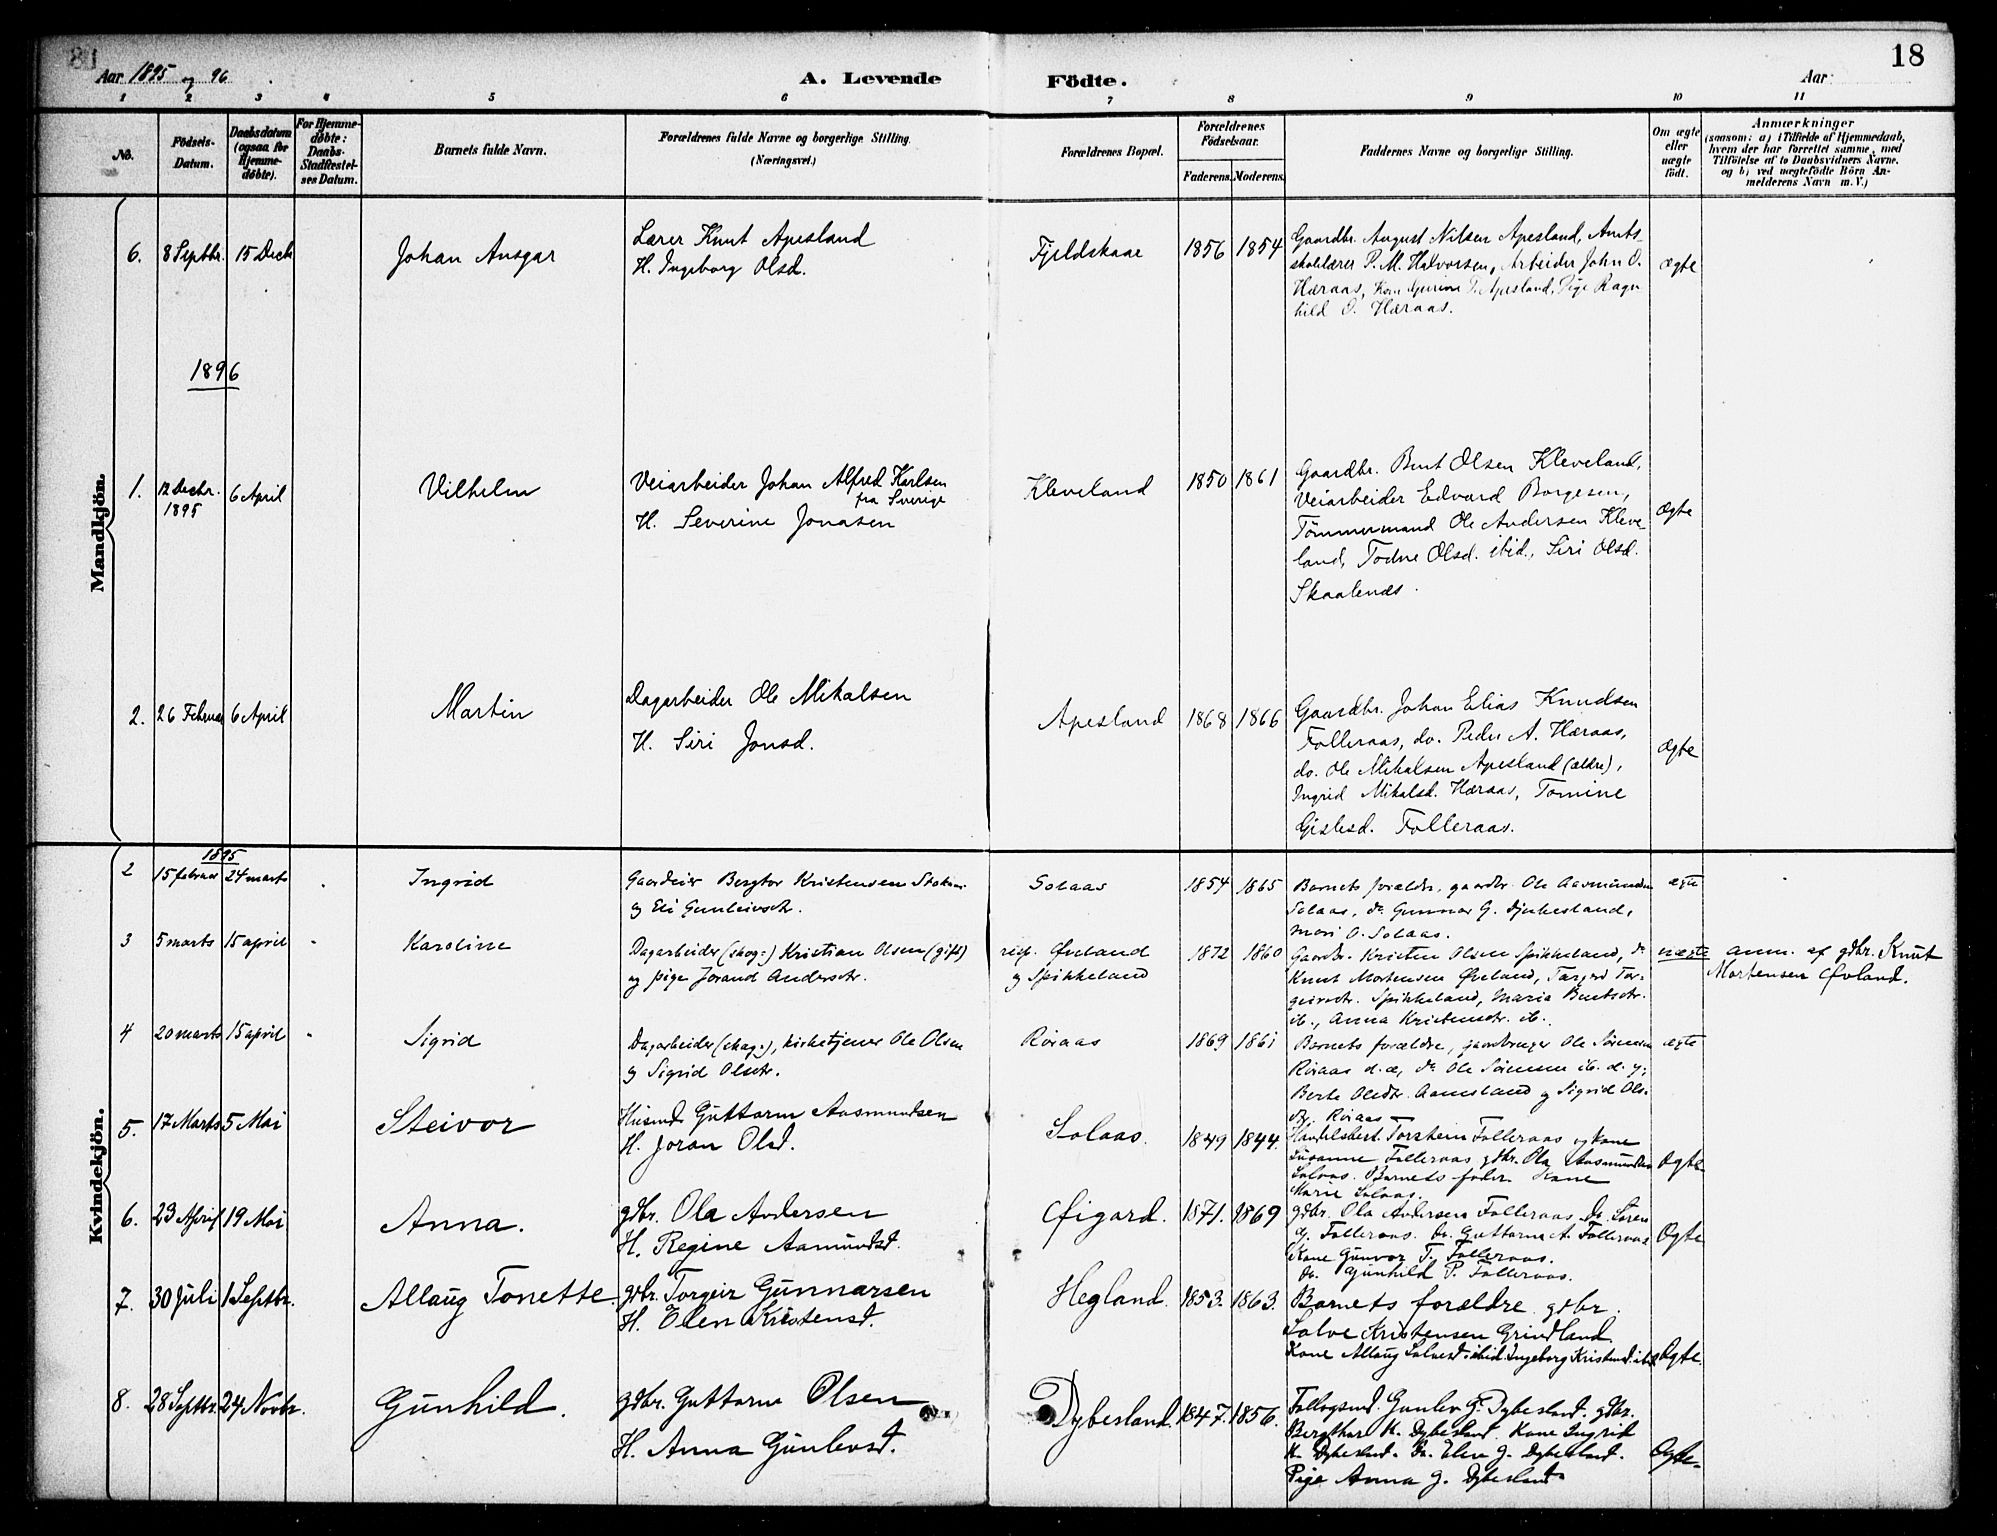 18
Aar 1895 og 96
A. Levende Födte.
Aar
1 2 3 4 5 6 7 8 9 10 11
No.
Födsels-Datum.
Daabsdatum (ogsaa for Hjemme-döbte).
For Hjemme-döbte: Daabs-Stadfæstel-ses Datum.
Barnets fulde Navn.
Forældrenes fulde Navne og borgerlige Stilling. (Næringsvei.)
Forældrenes Bopæl.
Forældrenes Födselsaar.
Faderens. Moderens.
Faddernes Navne og borgerlige Stilling.
Om ægte eller uægte födt.
Anmærkninger
(saasom: a) i Tilfælde af Hjemmedaab,
hvem der har forrettet samme, med
Tilföielse af to Daabsvidners Navne.
og b) ved uægtefödte Börn An-
melderens Navn m. V.)
Mandkjön.
6. 8 Septbr. 15 Decb Johan Ansgar
Lærer Knut Apesland
H. Ingeborg Olsd.
Fjeldskaar 1856 1854
Gaardbr. August Nilsen Apesland, Amts-
skolelærer P. M. Halvorsen, Arbeider John O.
Hæraas, Kone T. Apesland, Pige Ragn
hild O. Hæraas.
ægte
1896
1. 12 Decbr. 1895 6 April Vilhelm
Veiarbeider Johan Alfred Karlsen
fra Sverige
H. Severine Jonasen
Kleveland 1850 1861
Gaardbr. Bent Olsen Kleveland,
Veiarbeider Edvard Borgesen,
Tömmermand Ole Andersen Kleve-
land, Todne Olsd. ibid., Siri Olsd.
Skaalenes.
Ægte
2. 26 Februar 6 April Martin
Dagarbeider Ole Mikalsen
H. Siri Jonsd.
Apesland 1868 1866
Gaardbr. Johan Elias Knudsen
Folleraas, do. Peder A. Hæraas,
do. Ole Mikalsen Apesland (ældre),
Ingrid Mikalsd. Hæraas, Tomine
Gislesd. Folleraas.
Ægte
Kvindekjön.
1895
2 15 februar 24 marts Ingrid
Gaardeier Bergtor Kristensen
og Eli Gunleivsdtr.
Solaas 1854 1865
Barnets forældre, gaardbr. Ole Aasmundsen
Solaas, do Gunnar G. Djubesland,
Mari O. Solaas.
ægte
3 5 marts 15 april Karoline
Dagarbeider (skog-) Kristian Olsen (gift)
og pige Jorand Andersdtr.
resp. Øveland
og Spikkeland
1872 1860
Gaardbr. Kristen Olsen Spikkeland, do
Knut Mortensen Øveland, Targjerd Tor-
geirsdtr. Spikkeland, Maria Bentsdtr.
ib., Anna Kristensdtr. ib.
uægte
anm. af gdbr. Knut
Mortensen Øvland.
4 20 marts 15 april Sigrid
Dagarbeider (skog-), kirketjener Ole Olsen
og Sigrid Olsdtr.
Röiaas 1869 1861
Barnets forældre, gaardbruger Ole Sörensen
Röiaas d. æ, do Ole Sörensen ib. d. y.,
Berte Olsdtr. Aamesland og Sigrid Ols-
dtr. Röiaas
ægte
5. 17 Marts 5 Mai Steivor
Husmd. Guttorm Aasmundsen
H. Joran Olsd.
Solaas. 1849 1844.
Handelsbest. Torstein Folleraas og Kone
Susanne Folleraas gdbr. Ola Aasmundsen
Solaas. Barnets fader Kone
Marie Solaas.
Ægte
6. 23 April 19 Mai Anna.
gdbr. Ola Andersen
H. Regine Aamundsd.
Øigard. 1871. 1869
gdbr. Ola Andersen Folleraas Do. Sören
G. Folleraas. Do. Guttorm A. Folleraas
Kone Gunvor T. Folleraas.
do. Gunhild P. Folleraas.
Ægte
7. 30 Juli 1 Septbr. Allaug Tonette.
gdbr. Torgeir Gunnarsen
H. Elen Kristensd.
Hegland. 1853. 1863.
Barnets forældre gdbr.
Salve Kristensen Grindland
Kone Allaug Salvesd. ibid Ingeborg Kristensd. ibid
Ægte.
8. 28 Septbr. 24 Novbr. Gunhild.
gdbr. Guttorm Olsen
H. Anna Gunlevsd.
Dybesland. 1847. 1856.
Gunlev G. Dybesland. gdbr.
Bergthor K. Dybesland Kone Ingrid
K. Dybesland. Do. Elev G. Dybesland.
Pige Anna G. Dybesland
Ægte.